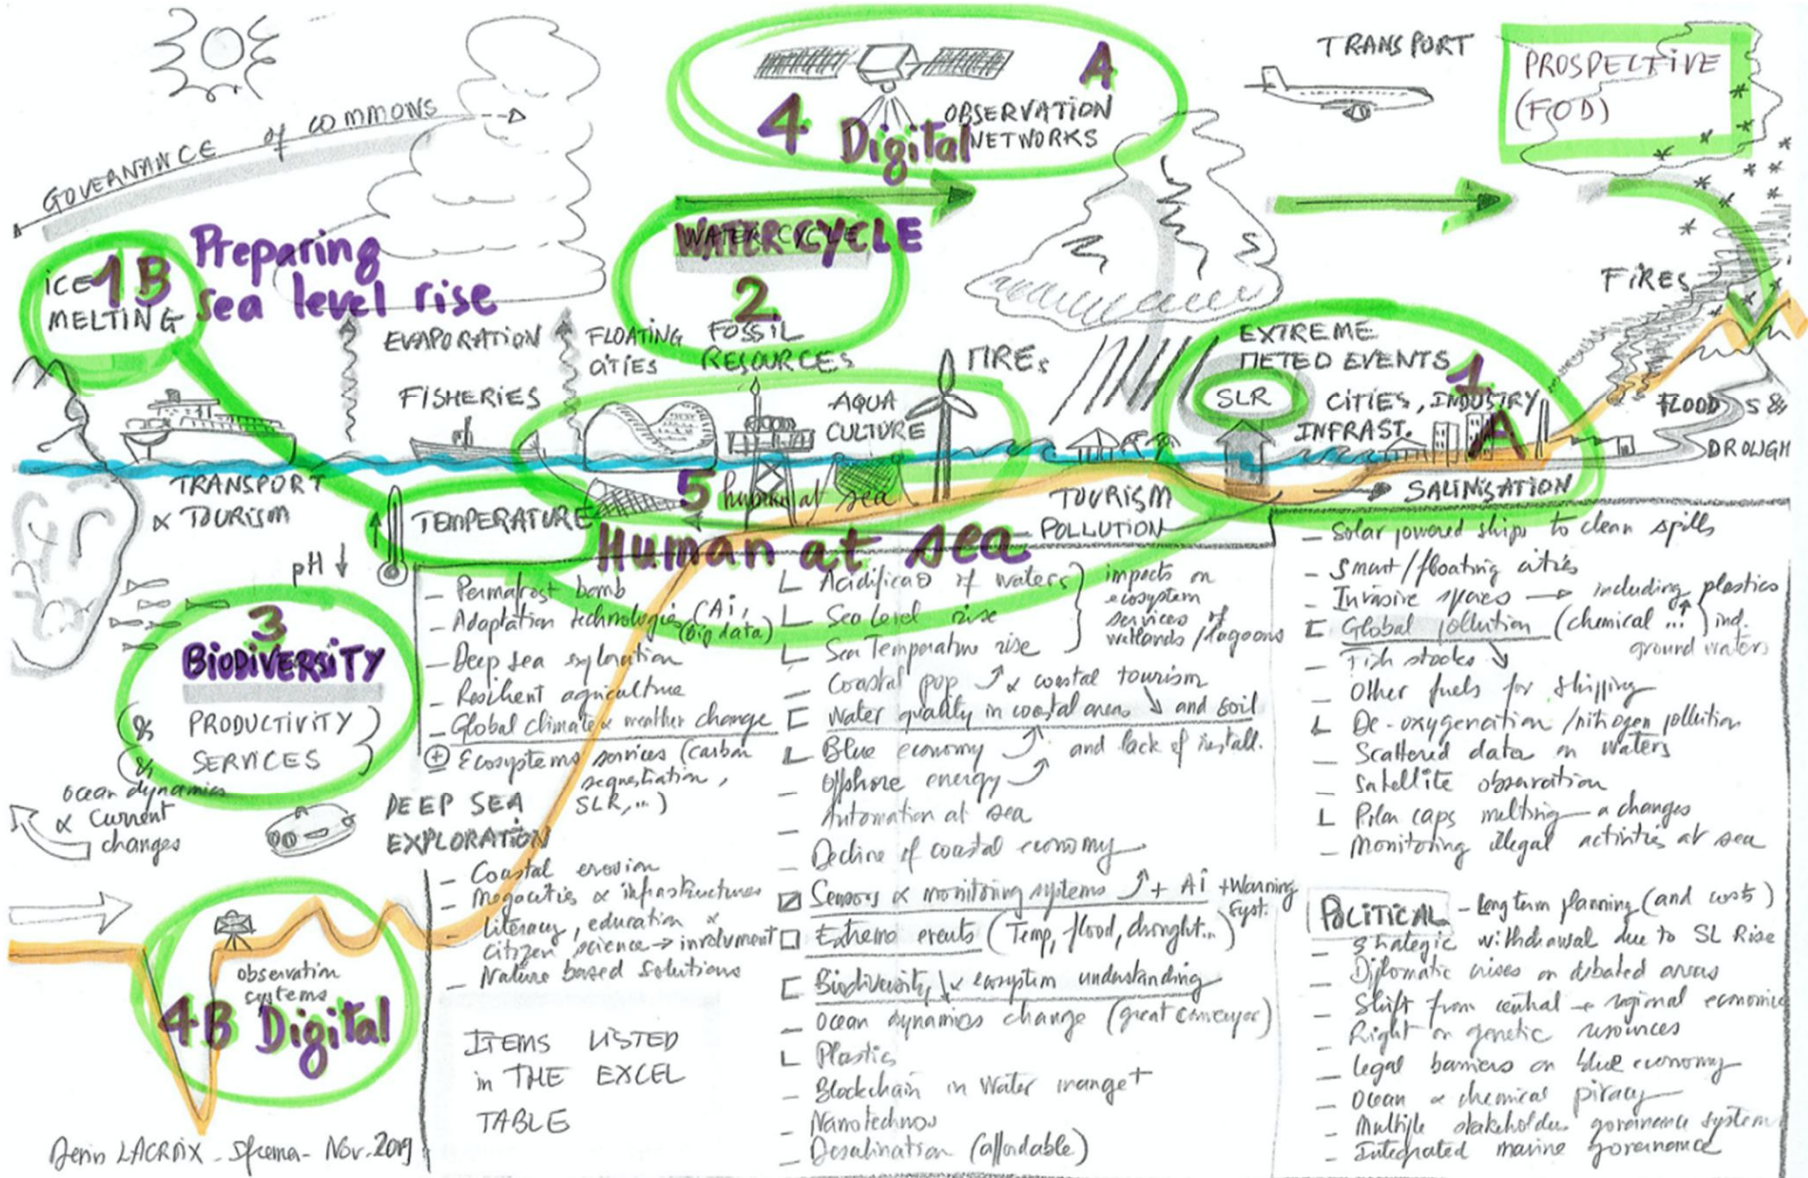 GOVERNANCE of COMMONS
A
4
OBSERVATION
Digital NETWORKS
TRANSPORT
PROSPECTIVE
(FOD)
WATER CYCLE
WATERCYCLE
2
FOSSIL
RESOURCES
ICE
MELTING
1B
Preparing
sea level rise
EVAPORATION
FLOATING
CITIES
FISHERIES
AQUA
CULTURE
EXTREME
METEO EVENTS
1
SLR
CITIES, INDUSTRY
INFRAST.
A
FIRES
FLOODS &
DROUGH
TRANSPORT
& TOURISM
TEMPERATURE
5 human at sea
Human at sea
TOURISM
POLLUTION
SALINISATION
pH ↓
3
BIODIVERSITY
(& PRODUCTIVITY)
(& SERVICES)
ocean dynamics
& current
changes
DEEP SEA
EXPLORATION
observation
systems
4B Digital
Denis LACROIX - Ifrema - Nov. 2019
- Permafrost bomb
- Adaptation technologies (Ai,
big data)
- Deep sea exploration
- Resilient agriculture
- Global climate & weather change
⊕ Ecosystems services (carbon
sequestration,
SLR,...)
- Coastal erosion
- Megacities & infrastructures
- Literacy, education &
citizen science → involvment
- Nature based solutions
ITEMS LISTED
in THE EXCEL
TABLE
Acidificao of waters
Sea Level rise
Sea Temperature rise
impacts on
ecosystem
services of
wetlands/lagoons
- Coastal pop ↗ & coastal tourism
Water quality in coastal areas ↘ and soil
Blue economy ↗ and lack of install.
Offshore energy ↗
- Automation at sea
- Decline of coastal economy
Sensors & monitoring systems ↗ + Ai + Warning
Syst.
Extreme events (Temp, flood, drought...)
Biodiversity ↘ & ecosystem understanding
- Ocean dynamics change (great conveyor)
Plastics
- Blockchain in Water mangt
- Nanotechnos
- Desalination (affordable)
- Solar powered ships to clean spills
- Smart/floating cities
- Invasive species → including plastics
Global pollution (chemical ...) ind.
ground waters
- Fish stocks ↘
- Other fuels for shipping
De-oxygenation/nitrogen pollution
- Scattered data on waters
- Satellite observation
Polar caps melting - & changes
- Monitoring illegal activities at sea
POLITICAL - Long term planning (and costs)
- Strategic withdrawal due to SL Rise
- Diplomatic crises on debated areas
- Shift from central → regional economie
- Right on genetic resources
- Legal barriers on blue economy
- Ocean & chemical piracy
- Multiple stakeholder governance system
- Integrated marine governance